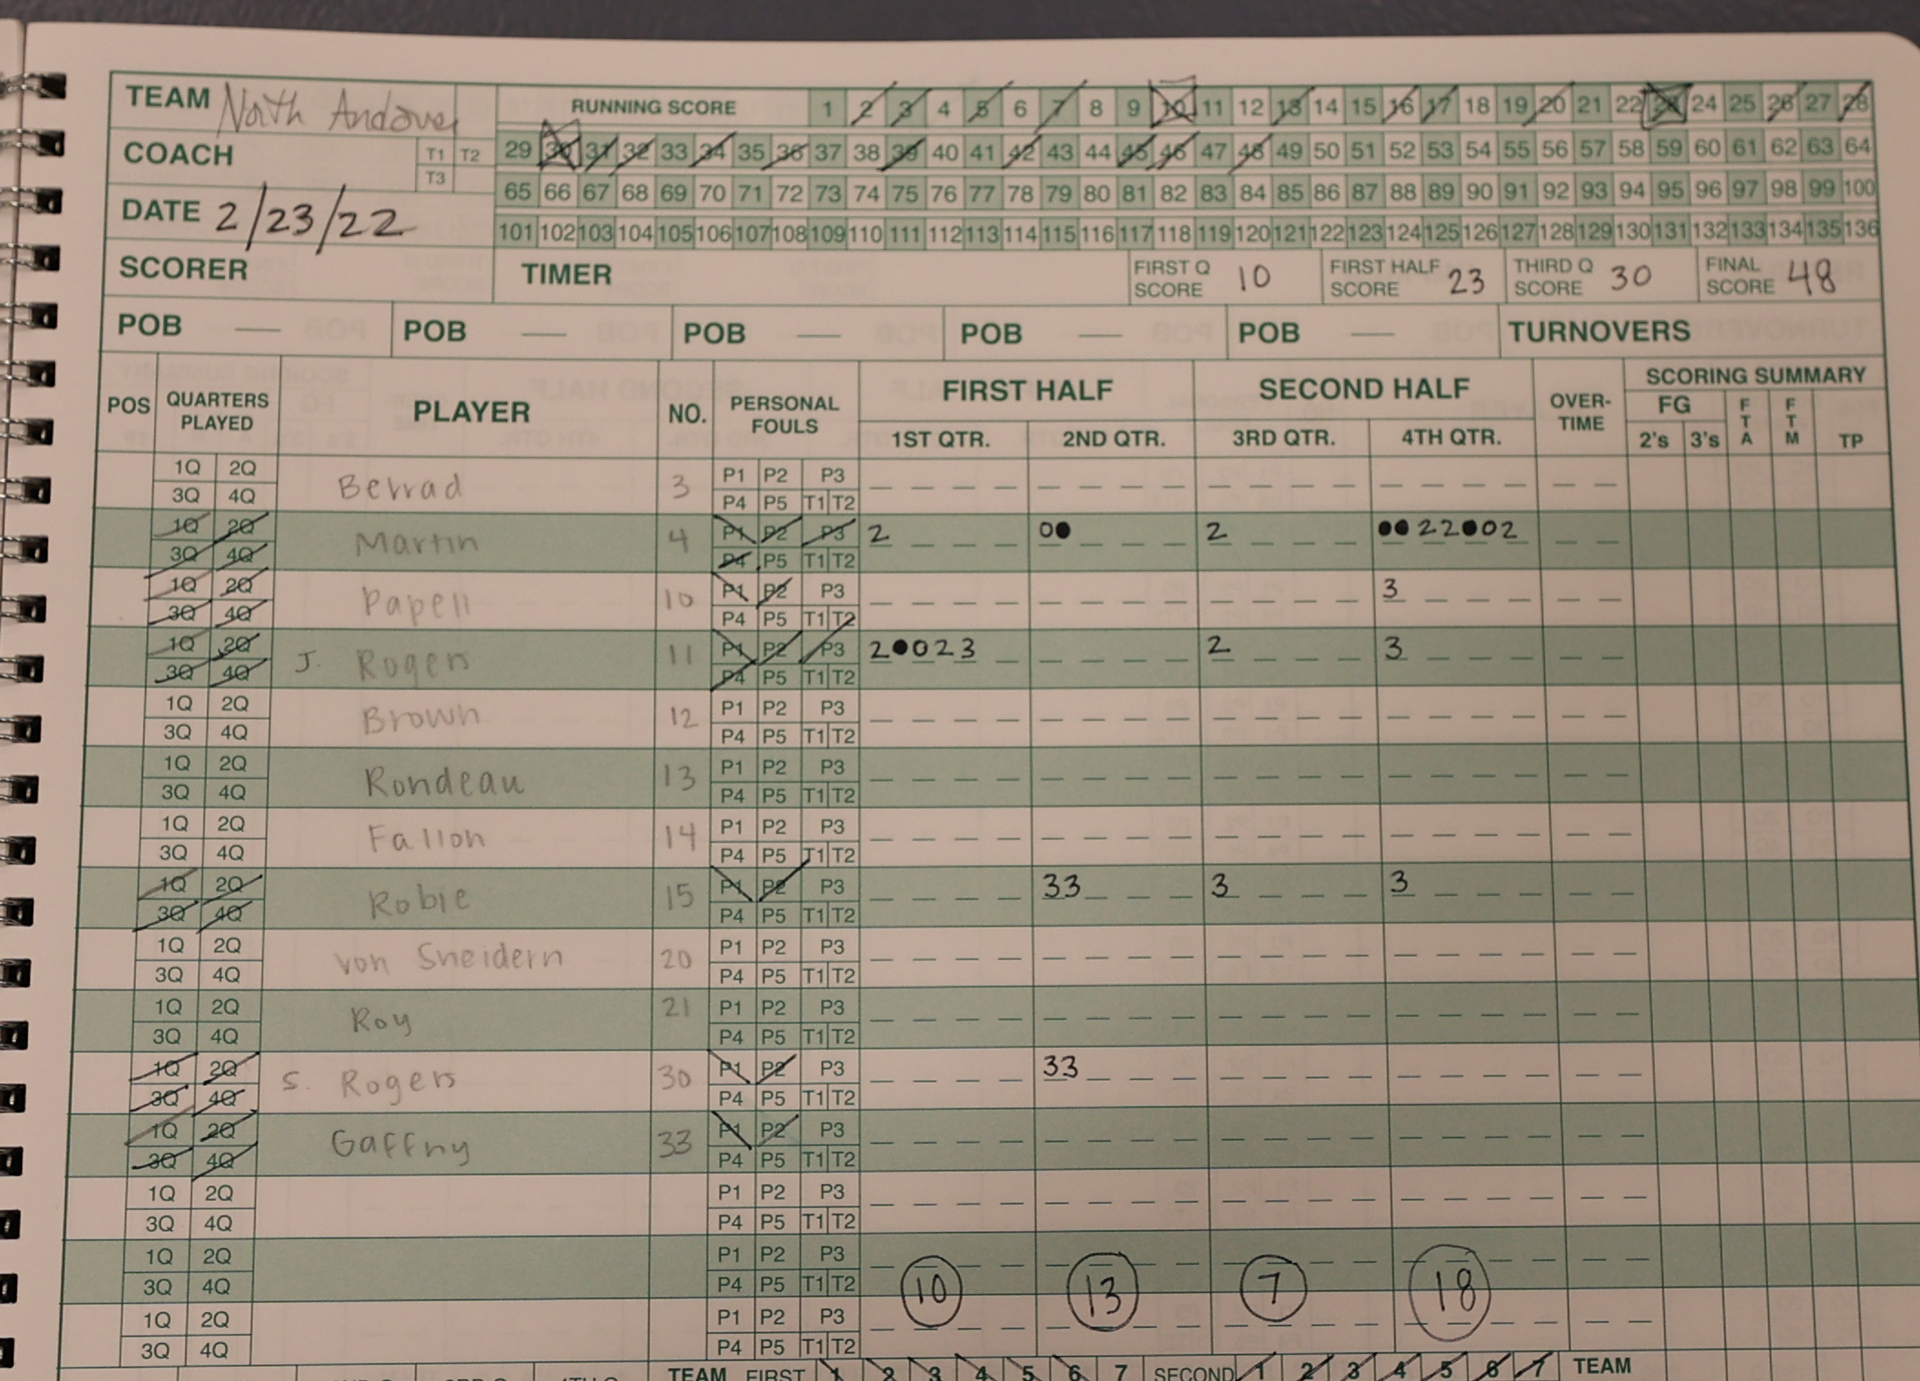 TEAM North Andover RUNNING SCORE 1 2 3 4 5 6 7 8 9 10 11 12 13 14 15 16 17 18 19 20 21 22 23 24 25 26 27 28
COACH T1 T2 T3 29 30 31 32 33 34 35 36 37 38 39 40 41 42 43 44 45 46 47 48 49 50 51 52 53 54 55 56 57 58 59 60 61 62 63 64
65 66 67 68 69 70 71 72 73 74 75 76 77 78 79 80 81 82 83 84 85 86 87 88 89 90 91 92 93 94 95 96 97 98 99 100
DATE 2/23/22 101 102 103 104 105 106 107 108 109 110 111 112 113 114 115 116 117 118 119 120 121 122 123 124 125 126 127 128 129 130 131 132 133 134 135 136
SCORER TIMER FIRST Q SCORE 10 FIRST HALF SCORE 23 THIRD Q SCORE 30 FINAL SCORE 48
POB — POB — POB — POB — POB — TURNOVERS
POS QUARTERS PLAYED PLAYER NO. PERSONAL FOULS FIRST HALF SECOND HALF OVER-TIME SCORING SUMMARY
1ST QTR. 2ND QTR. 3RD QTR. 4TH QTR. FG 2's 3's FTA FTM TP
1Q 2Q Berrad 3 P1 P2 P3
3Q 4Q P4 P5 T1 T2
1Q 2Q Martin 4 P1 P2 P3 2 0● 2 ●●22●02
3Q 4Q P4 P5 T1 T2
1Q 2Q Papell 10 P1 P2 P3 3
3Q 4Q P4 P5 T1 T2
1Q 2Q J. Rogers 11 P1 P2 P3 2●023 2 3
3Q 4Q P4 P5 T1 T2
1Q 2Q Brown 12 P1 P2 P3
3Q 4Q P4 P5 T1 T2
1Q 2Q Rondeau 13 P1 P2 P3
3Q 4Q P4 P5 T1 T2
1Q 2Q Fallon 14 P1 P2 P3
3Q 4Q P4 P5 T1 T2
1Q 2Q Robie 15 P1 P2 P3 33 3 3
3Q 4Q P4 P5 T1 T2
1Q 2Q von Sneidern 20 P1 P2 P3
3Q 4Q P4 P5 T1 T2
1Q 2Q Roy 21 P1 P2 P3
3Q 4Q P4 P5 T1 T2
1Q 2Q S. Rogers 30 P1 P2 P3 33
3Q 4Q P4 P5 T1 T2
1Q 2Q Gaffny 33 P1 P2 P3
3Q 4Q P4 P5 T1 T2
1Q 2Q P1 P2 P3
3Q 4Q P4 P5 T1 T2
1Q 2Q P1 P2 P3
3Q 4Q P4 P5 T1 T2 10 13 7 18
1Q 2Q P1 P2 P3
3Q 4Q P4 P5 T1 T2
TEAM FIRST 1 2 3 4 5 6 7 SECOND 1 2 3 4 5 6 7 TEAM